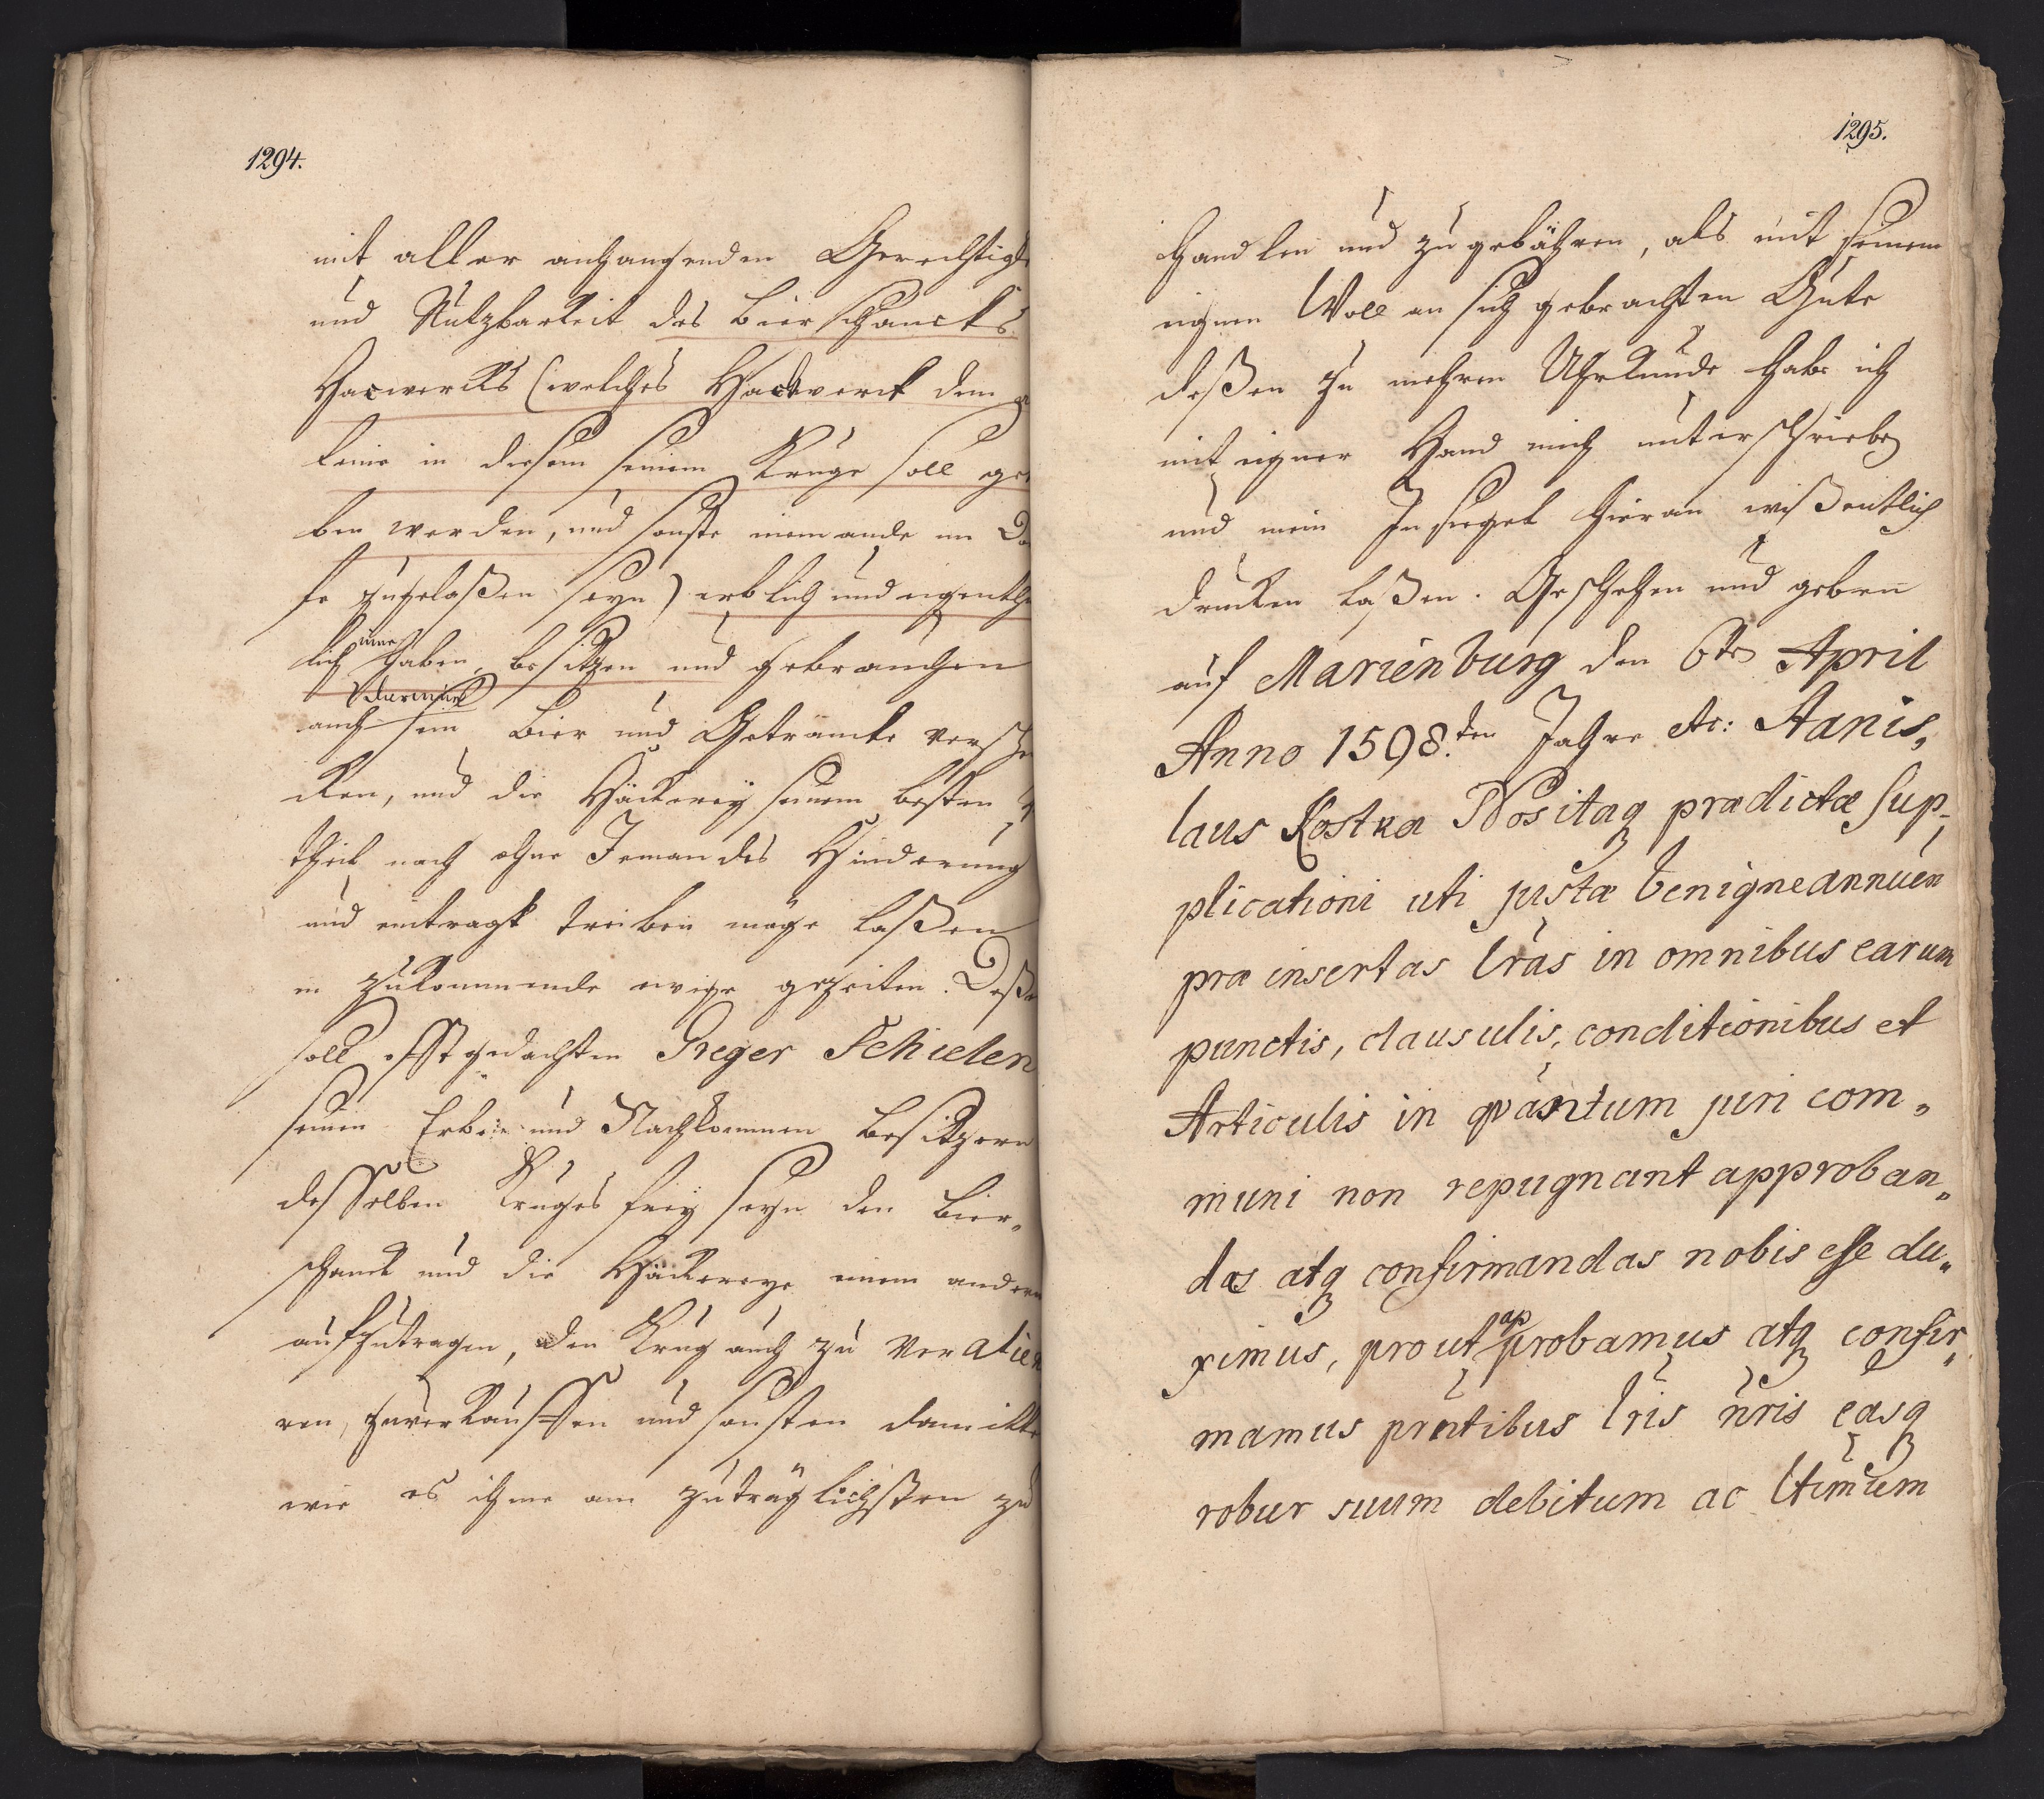 1294.
mit aller anhangenden Gerechtigk
und Nutzbarkeit des Bierschancks
Hacwercks (welches Hackwerck dem
keine in diesem seinem Kruge soll ge
ben werden, und sonste niemande im Do
fe zugelaßen seyn) erblich und eigenth
lich haben, besitzen und gebrauchen
inne
auch sein Bier und Getrancke versche
cken, und die Häckereÿ seinem besten
theil nach ohne Jemandes Hinderung
und eintragk treiben möge laßen
in zukommende ewige gezeiten. Deße
soll offtgedachten Greger Schielen
seinen Erben und Nachkommen Besitzern
desselben Kruges freÿ seyn den Bier„
schanck und die Häckereye einem andern
aufzutragen, den Krug auch zu veralie
ren, zuverkauffen und sonsten damitte
wie es ihme am zuträglichsten zu
1295.
handlen und zu gebähren, als mit seinem
eignen Woll an sich gebrachten Gute
deßen zu mehren Uhrkunde habe ich
mit eigner Hand mich unterschrieben
und mein Insiegel hieran wißentlich
drucken laßen. Geschehen und geben
auf Marienburg den 6ten April
Anno 1598.ten Jahre etc: Stanis„
laus Kostka Nos itaq prædictæ sup„
plicationi uti justæ benigne annuen
præ insertas lras in omnibus earum
punctis, clausulis, conditionibus et
Articulis in qvantum juri com„
muni non repugnant approban„
das atq confirmandas nobis esse du„
ximus, prout approbamus atq confir„
mamus prntibus lris nris easq
robur suum debitum ac ltimum